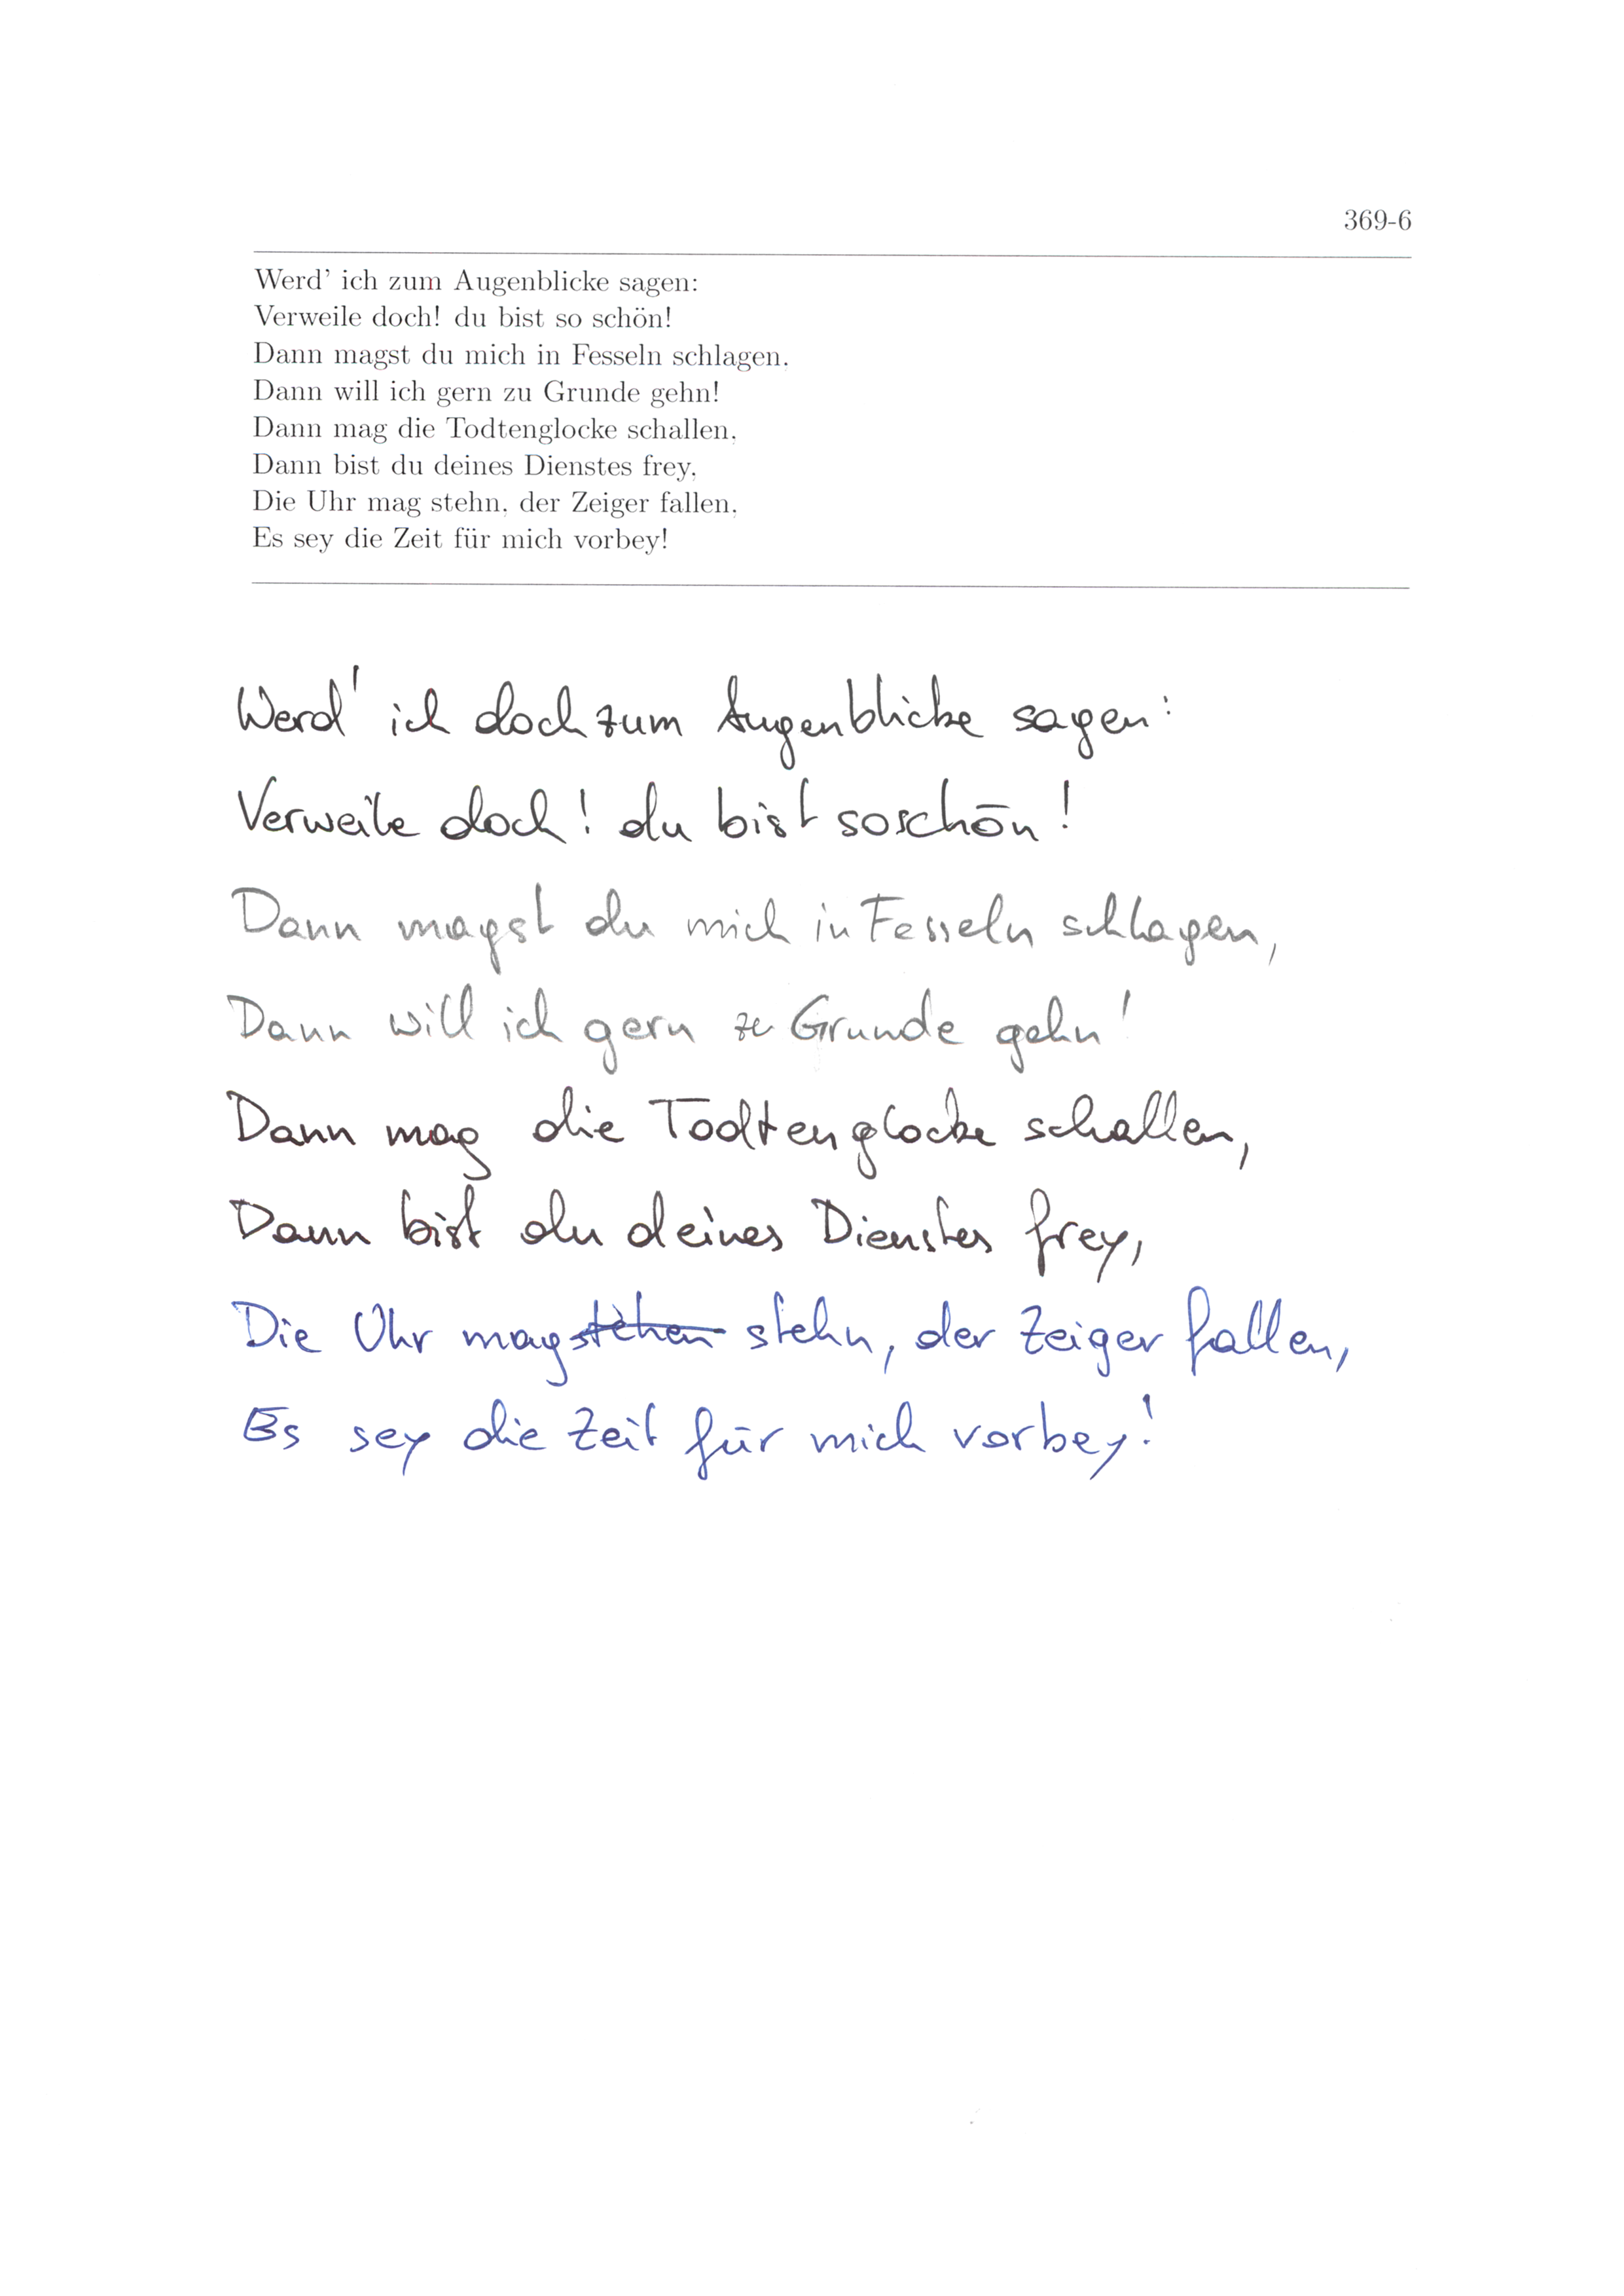 369-6
Werd' ich zum Augenblicke sagen:
Verweile doch! du bist so schön!
Dann magst du mich in Fesseln schlagen,
Dann will ich gern zu Grunde gehn!
Dann mag die Todtenglocke schallen,
Dann bist du deines Dienstes frey,
Die Uhr mag stehn, der Zeiger fallen,
Es sey die Zeit für mich vorbey!
Werd' ich doch zum Augenblicke sagen:
Verweile doch! du bist so schön!
Dann magst du mich in Fesseln schlagen,
Dann will ich gern zu Grunde gehn!
Dann mag die Todtenglocke schallen,
Dann bist du deines Dienstes frey,
Die Uhr mag stehen stehn, der Zeiger fallen,
Es sey die Zeit für mich vorbey!